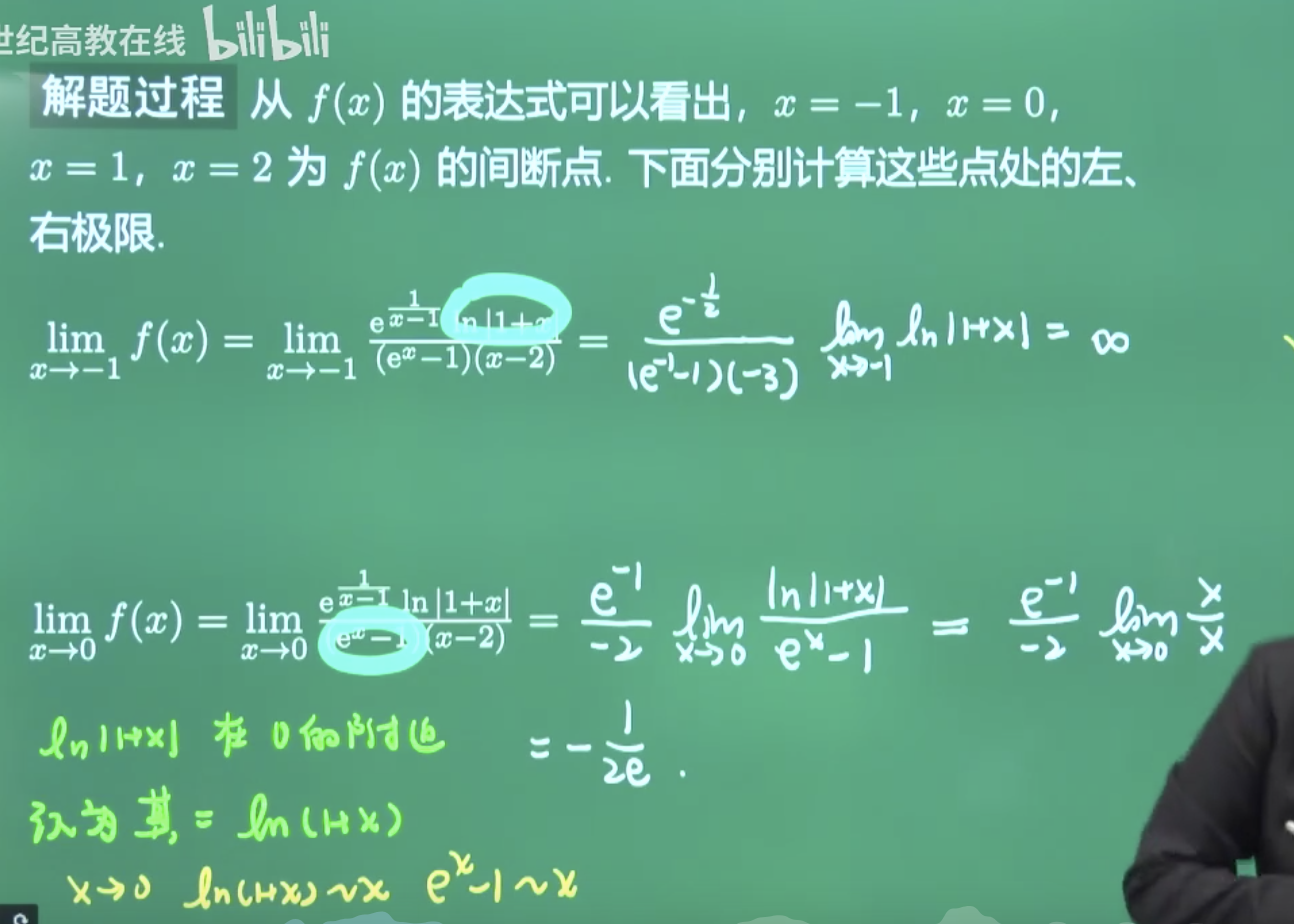 世纪高教在线 bilibili
解题过程 从 f(x) 的表达式可以看出, x = −1, x = 0,
x = 1, x = 2 为 f(x) 的间断点. 下面分别计算这些点处的左、
右极限.
lim_{x→−1} f(x) = lim_{x→−1} \frac{e^{\frac{1}{x−1}} ln|1+x|}{(e^x−1)(x−2)} = \frac{e^{−\frac{1}{2}}}{(e^{−1}−1)(−3)} lim_{x→−1} ln|1+x| = ∞
lim_{x→0} f(x) = lim_{x→0} \frac{e^{\frac{1}{x−1}} ln|1+x|}{(e^x−1)(x−2)} = \frac{e^{−1}}{−2} lim_{x→0} \frac{ln|1+x|}{e^x−1} = \frac{e^{−1}}{−2} lim_{x→0} \frac{x}{x}
= −\frac{1}{2e}.
ln|1+x| 在 0 的附近
认为其 = ln(1+x)
x→0 ln(1+x)~x e^x−1~x